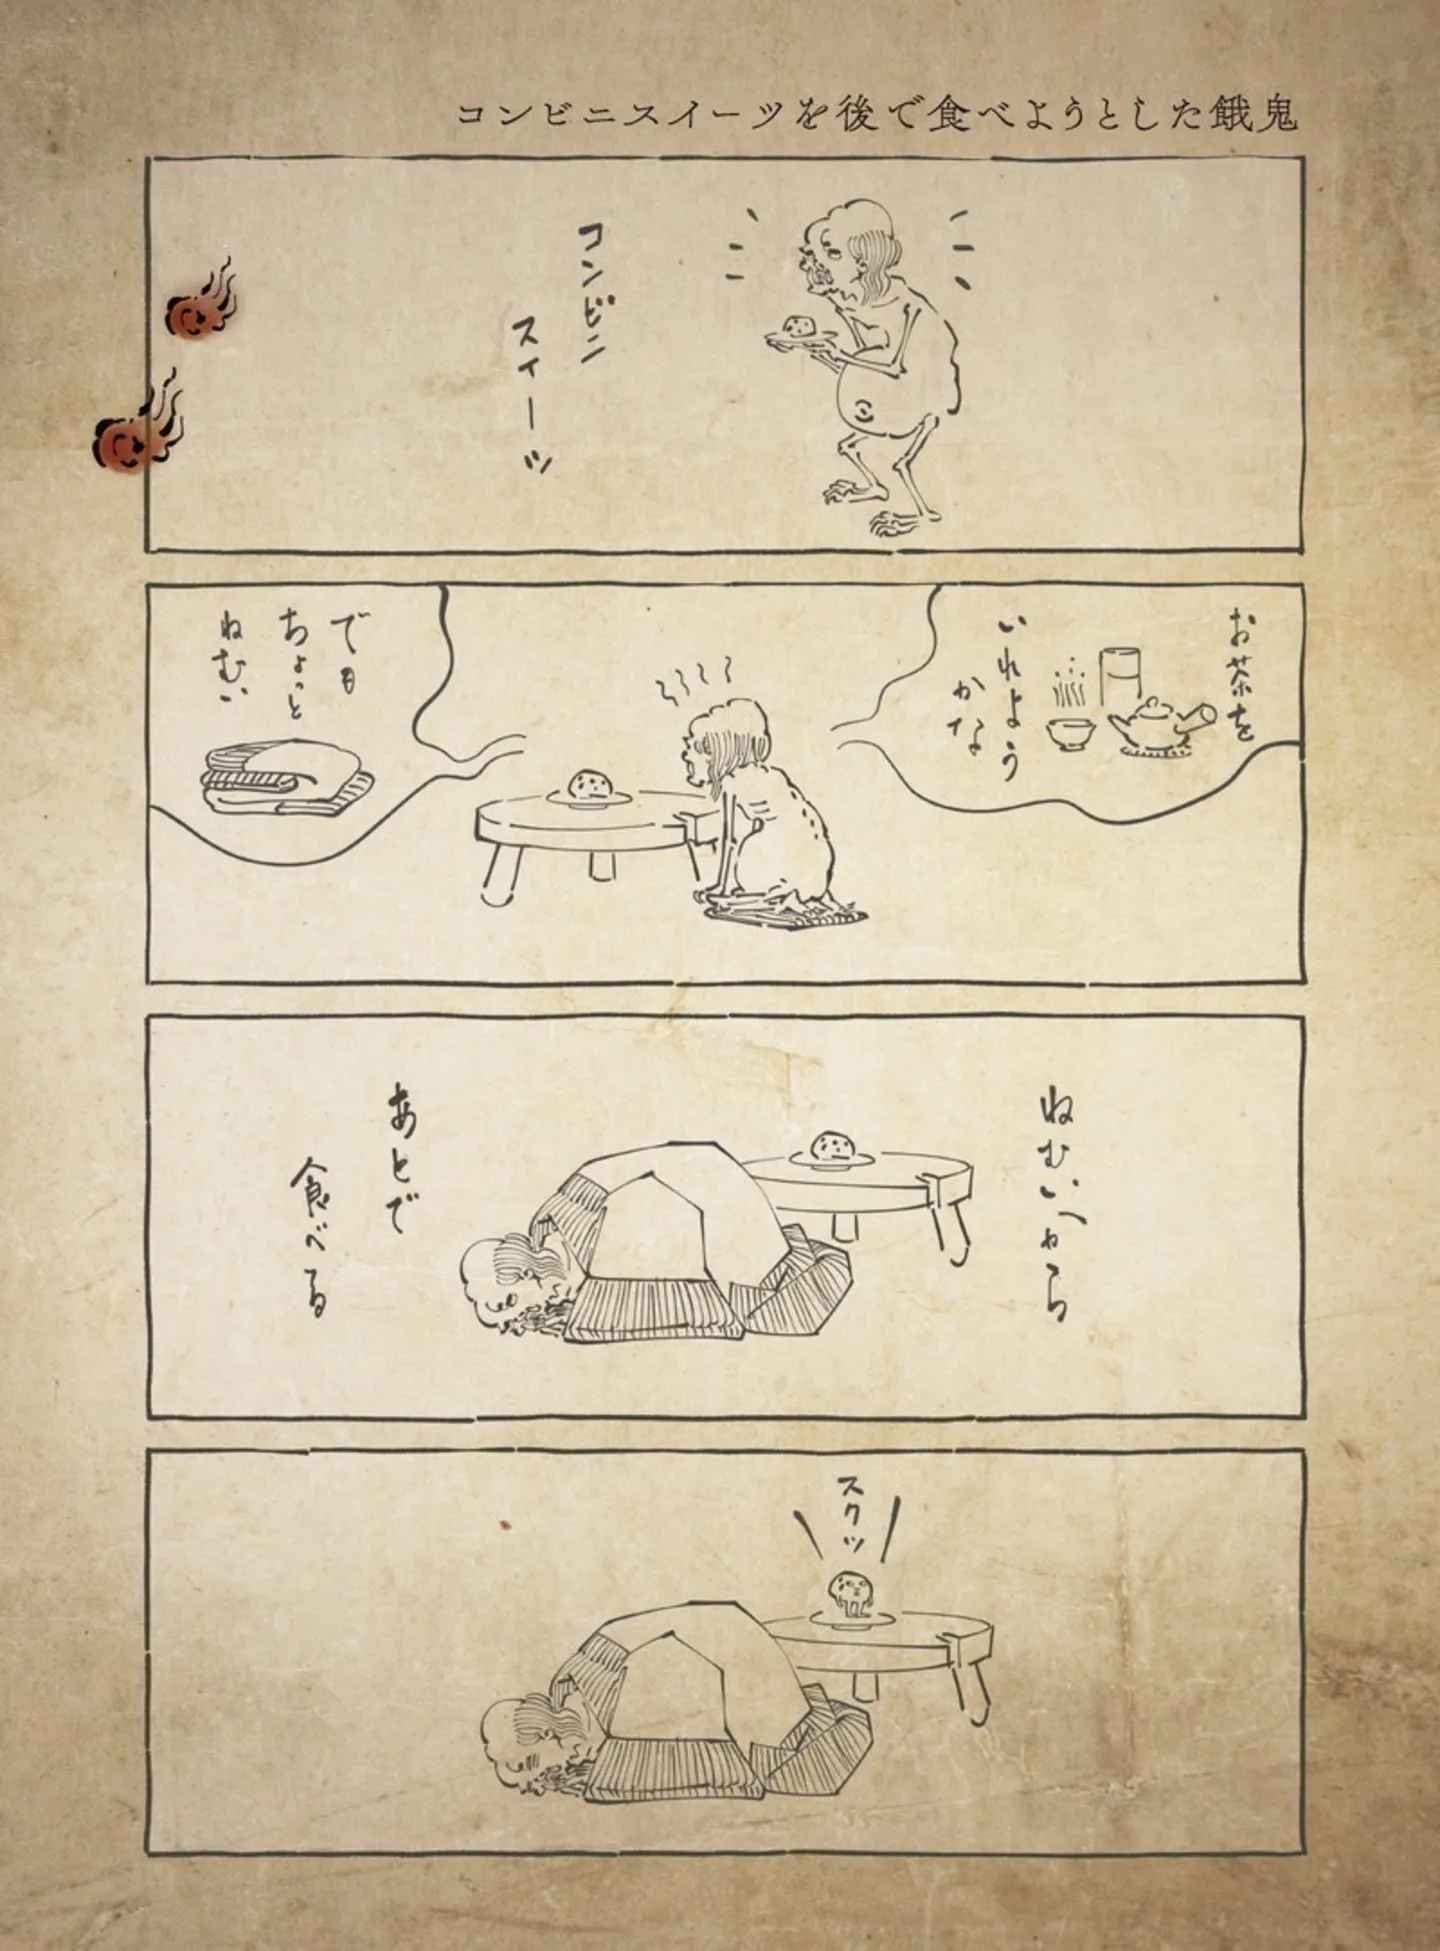 コンビニスイーツを後で食べようとした餓鬼
コンビン
スイーツ
お茶を
いれよう
かな
でも
ちょっと
ねむい
ねむいから
あとで
食べる
スクッ